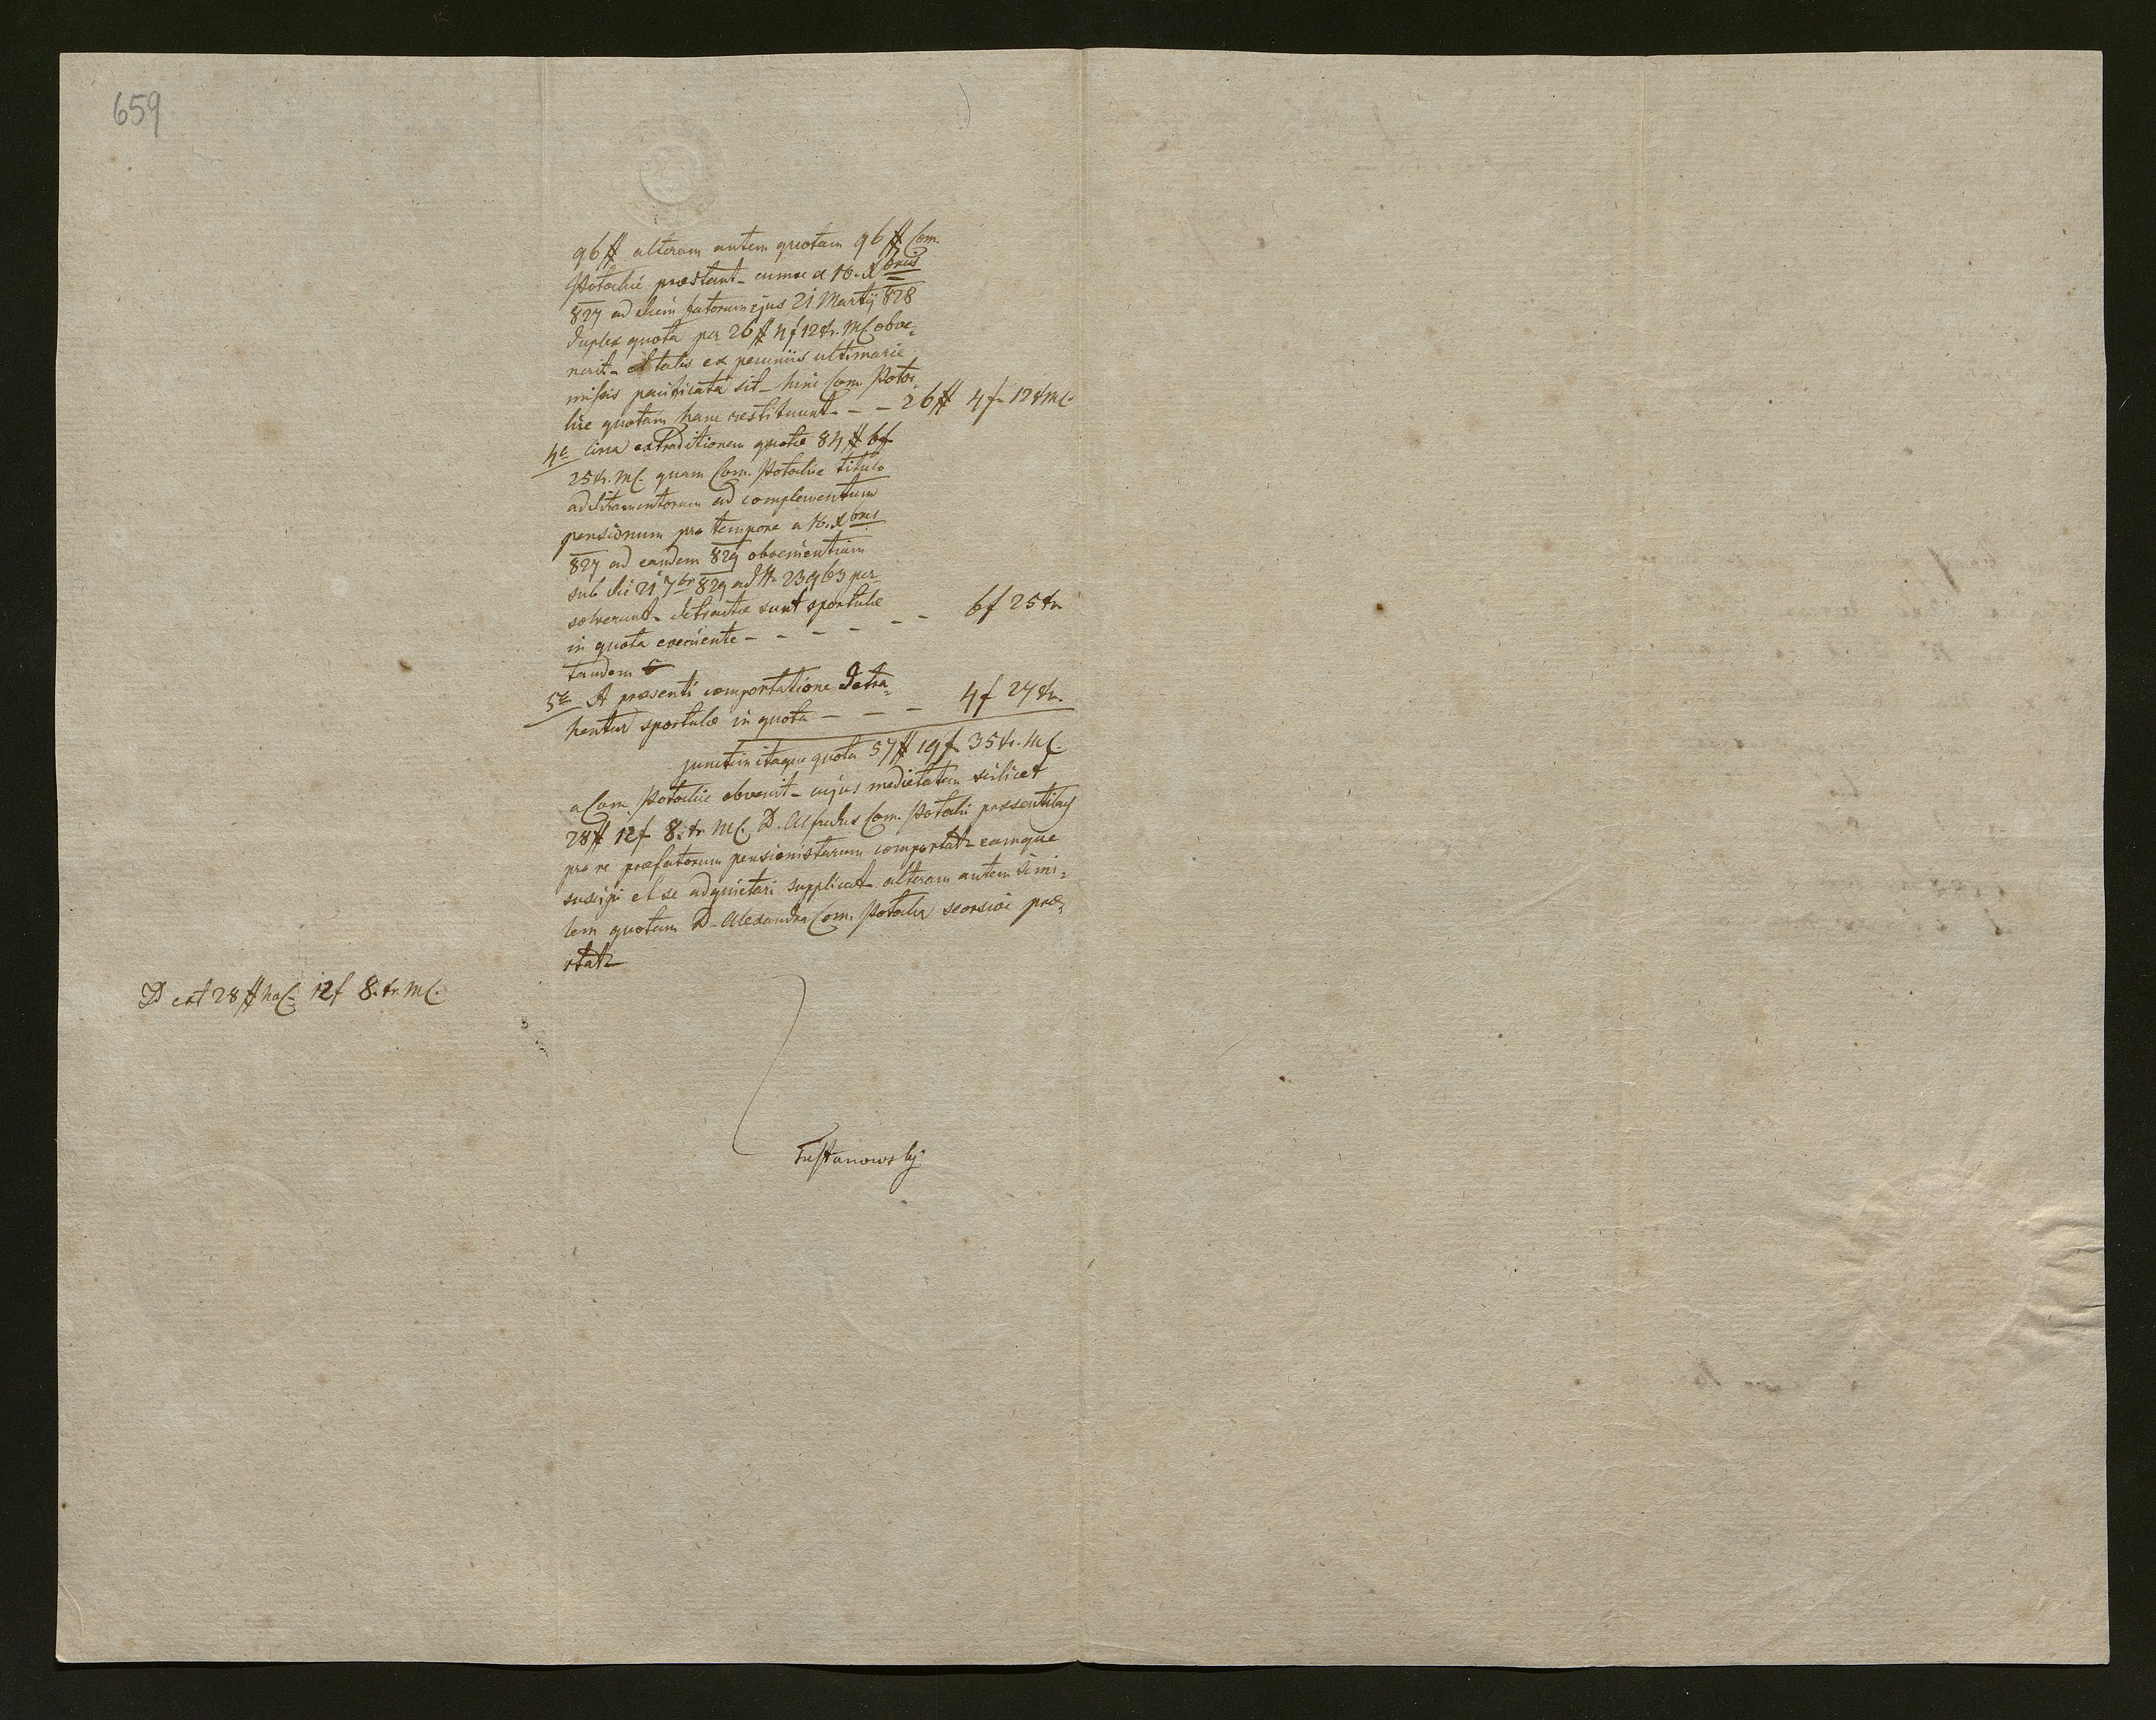 659
96 # alteram autem quotam 96 # Com.
Potockie praestant - cumve a 16. Xbris
827 ad diem fatorum ejus 21 Martij 828
duplex quota per 26 # 4 f 12 xr. MC. obve=
nerit - et talis ex pecuniis ultimarie
missis pacificata sit - hinc Com. Potoc=
kie quotam hanc restituunt - - 26 # 4 f 12 xr MC.
4to circa extraditionem quotae 84 # 6 f
25 xr. MC. quam Com. Potockie titulo
additamentorum ad complementum
pensionum pro tempore a 16. Xbris
827 ad eandem 829 obvenientium
sub die 21 7br 829 ad Nr 23963 per
solverunt - detractae sunt sportulae
in quota eveniente - - - - - - 6 f 25 xr
tandem
5to A praesenti comportatione detra=
hentur sportulae in quota - - - 4 f 24 xr.
junctim itaque quota 57 # 19 f 35 xr. MC.
a Com. Potockie obvenit - cujus medietatem scilicet
28 # 12 f 8. xr MC. D. Alfredus Com. Potocki praesentibus
pro re praefatorum pensionistarum comportat - eamque
suscipi et se adquietari supplicat - alteram autem simi=
lem quotam D. Alexandra Com. Potocka seorsive prae=
stat -
D est 28 # hol. 12 f 8. xr. MC.
Tustanowsky